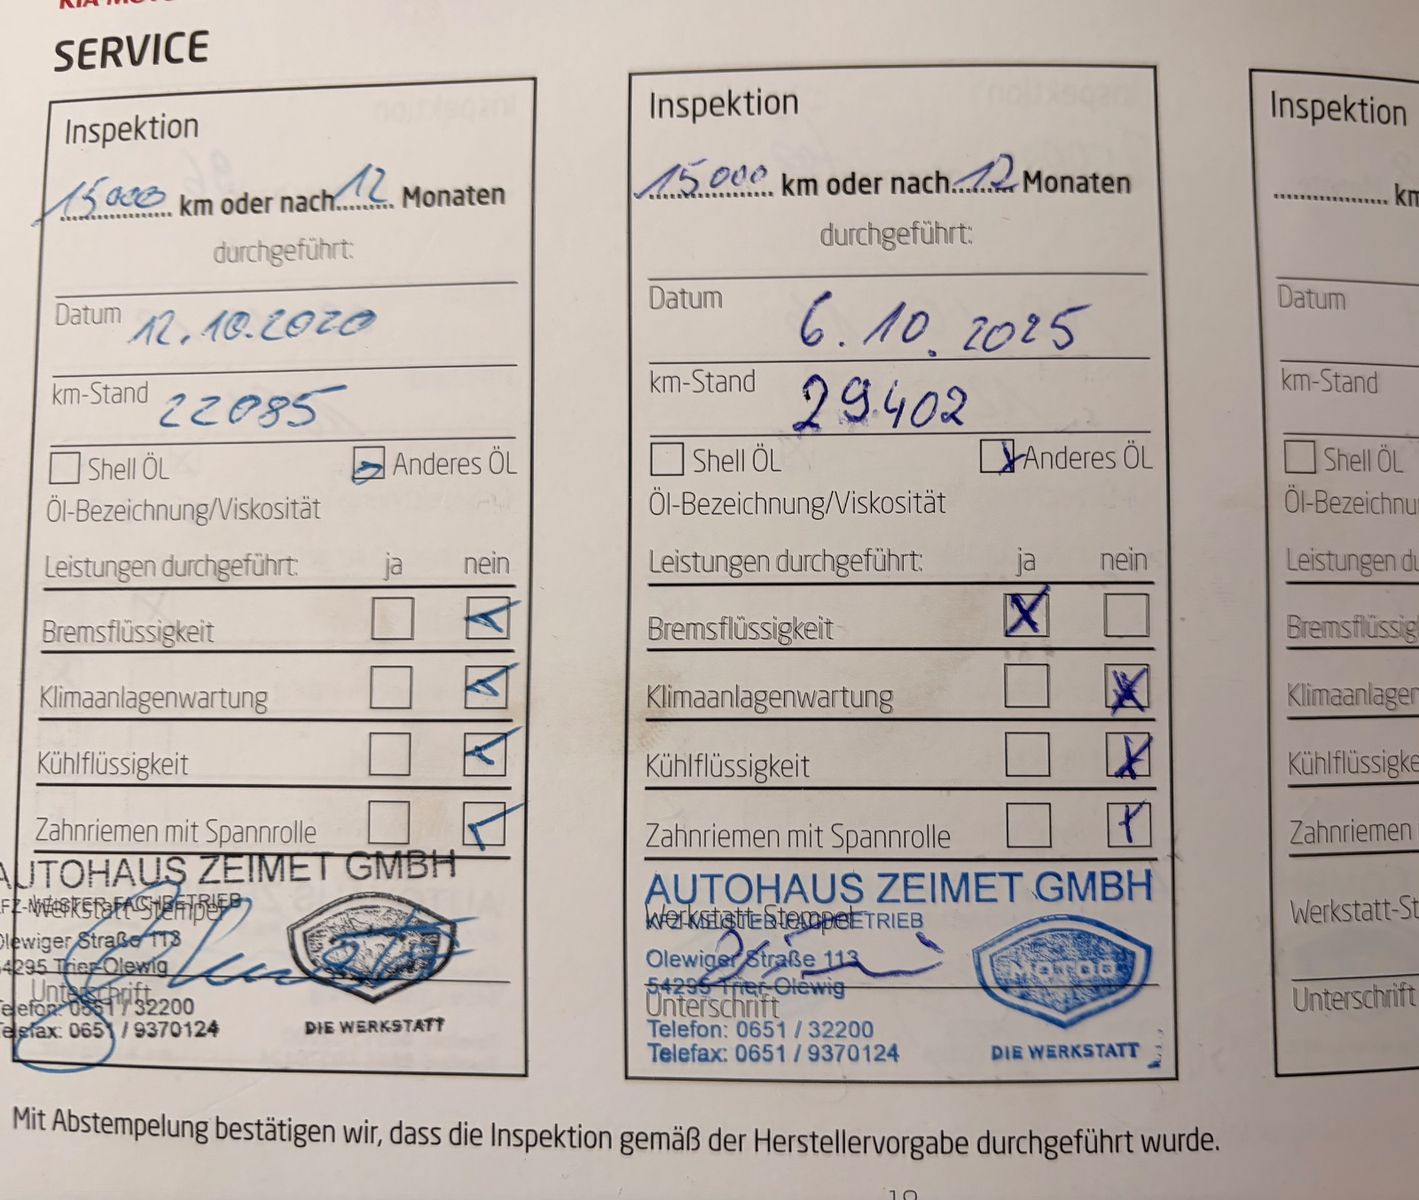 SERVICE
Inspektion
15000 km oder nach 12 Monaten
durchgeführt:
Datum 12.10.2020
km-Stand 22085
Shell ÖL Anderes ÖL
Öl-Bezeichnung/Viskosität
Leistungen durchgeführt: ja nein
Bremsflüssigkeit
Klimaanlagenwartung
Kühlflüssigkeit
Zahnriemen mit Spannrolle
AUTOHAUS ZEIMET GMBH
KFZ-MEISTER-FACHBETRIEB
Werkstatt-Stempel
Olewiger Straße 113
54295 Trier-Olewig
Unterschrift
Telefon: 0651 / 32200
Telefax: 0651 / 9370124
DIE WERKSTATT
Inspektion
15000 km oder nach 12 Monaten
durchgeführt:
Datum 6.10.2025
km-Stand 29.402
Shell ÖL Anderes ÖL
Öl-Bezeichnung/Viskosität
Leistungen durchgeführt: ja nein
Bremsflüssigkeit X
Klimaanlagenwartung X
Kühlflüssigkeit X
Zahnriemen mit Spannrolle X
AUTOHAUS ZEIMET GMBH
Werkstatt-Stempel
KFZ-MEISTER-FACHBETRIEB
Olewiger Straße 113
54295 Trier-Olewig
Unterschrift
Telefon: 0651 / 32200
Telefax: 0651 / 9370124
Motoo
DIE WERKSTATT
Inspektion
km
Datum
km-Stand
Shell ÖL
Öl-Bezeichnu
Leistungen du
Bremsflüssig
Klimaanlagen
Kühlflüssigke
Zahnriemen
Werkstatt-St
Unterschrift
Mit Abstempelung bestätigen wir, dass die Inspektion gemäß der Herstellervorgabe durchgeführt wurde.